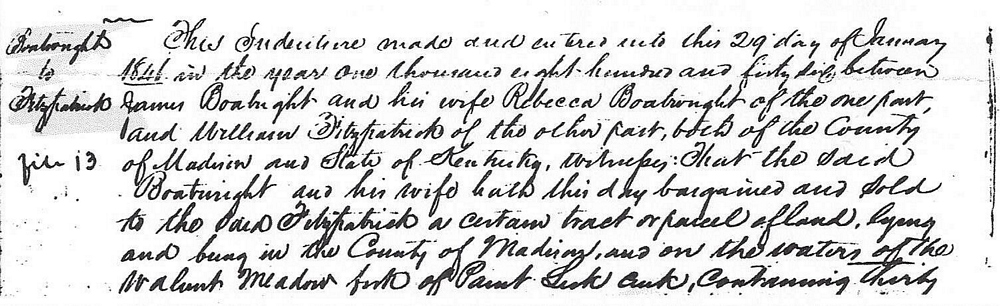 Boatwright
to
Fitzpatrick
file 13
This Indenture made and entered into this 29 day of January
1846 in the year one thousand eight hundred and forty six, between
James Boatright and his wife Rebecca Boatwright of the one part,
and William Fitzpatrick of the other part, both of the County
of Madison and State of Kentucky, Witness; That the said
Boatwright and his wife hath this day bargained and sold
to the said Fitzpatrick a certain tract or parcel of land, lying
and being in the County of Madison, and on the waters of the
Walnut Meadow fork of Paint Lick Creek, Containing thirty